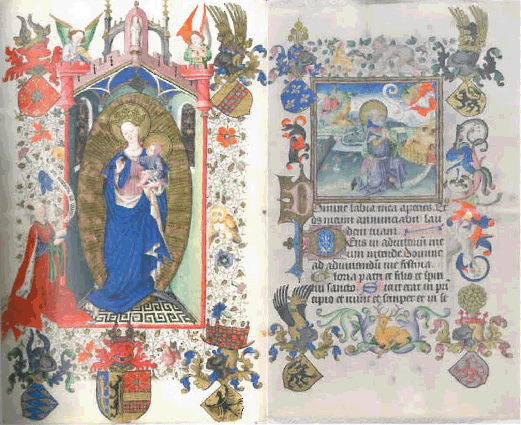 Domine labia mea aperies. Et
os meum annunciabit lau
dem tuam.
Deus in adiutorium me
um intende. Domine
ad adiuvandū me festina.
Gloria patri et filio et spiri
tui sancto Sicut erat in pri
cipio et nunc et semper et in se